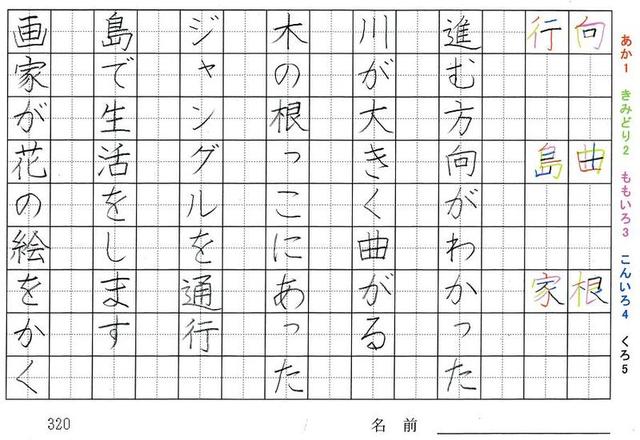 あか1 きみどり2 ももいろ3 こんいろ4 くろ5
向 曲 根
行 島 家
進む方向がわかった
川が大きく曲がる
木の根っこにあった
ジャングルを通行
島で生活をします
画家が花の絵をかく
320
名前